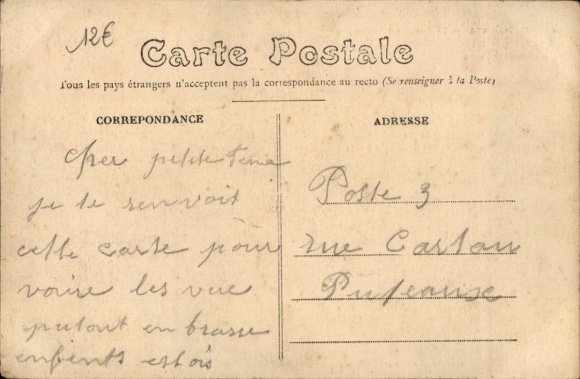 12€
Carte Postale
Tous les pays étrangers n'acceptent pas la correspondance au recto (Se renseigner à la Poste)
CORREPONDANCE
ADRESSE
cher petite
je te renvoit
cette carte pour
voire les vue
en brasse
enfents
Poste 3
rue
Puteaux